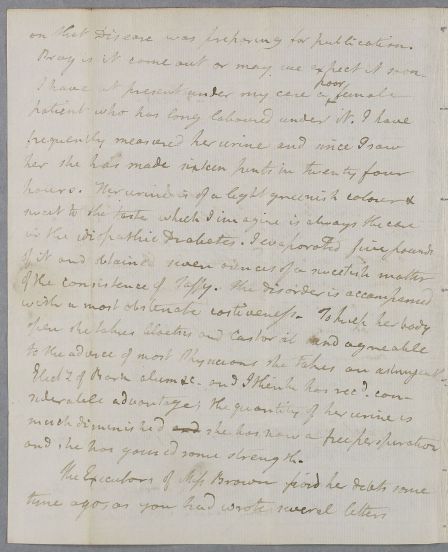 on that Disease was preparing for publication.
Pray is it come out or may we expect it soon.
I have at present under my care a poor female
patient who has long laboured under it. I have
frequently measured her urine and since I saw
her she has made sixteen pints in twenty four
hours. Her urine is of a light greenish colour &
sweet to the taste which I imagine is always the case
in the idiopathic Diabetes. I evaporated five pounds
of it and obtained seven ounces of a sweetish matter
of the consistence of Taffy. The disorder is accompanied
with a most obstinate costiveness. To keep her body
open she takes and Castor oil and agreeable
to the advice of most Physicians she takes an astringent
Elect.y of Bark alum &c. and I think has rec.d con-
siderable advantage; the quantity of her urine is
much diminished and she has now a free perspiration
and she has gained some strength.
The Executors of Miss Brown paid her debts some
time ago as you had wrote several letters